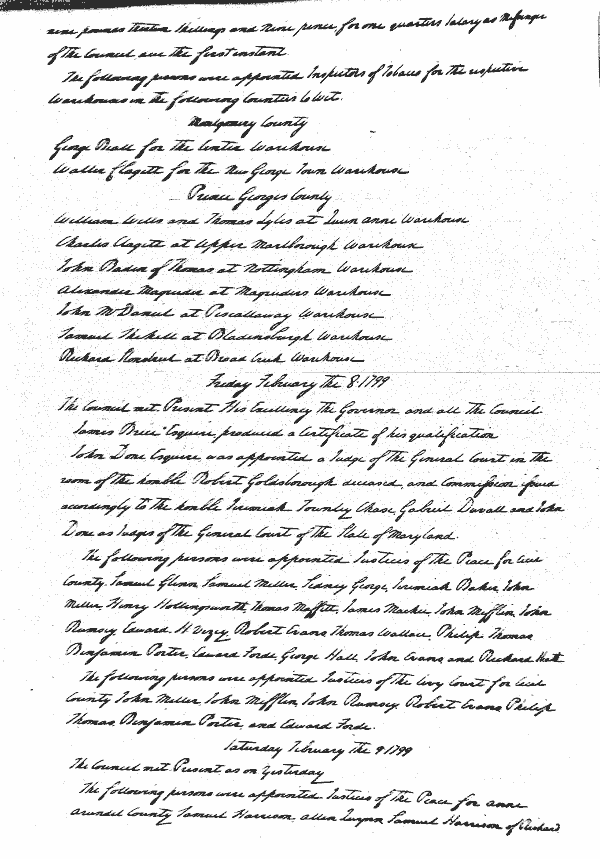 nine pounds thirteen shillings and nine pence for one quarters Salary as Messenger
of the Council due the first instant
The following persons were appointed Inspectors of Tobacco for the respective
Warehouses in the following Counties to Wit.
Montgomery County
George Beall for the Center Warehouse
Walter Clagett for the New George Town Warehouse
Prince Georges County
William Wells and Thomas Lyles at Queen Anne Warehouse
Charles Clagett at Upper Marlborough Warehouse
John Baden of Thomas at Nottingham Warehouse
Alexander Magruder at Magruders Warehouse
John McDaniel at Piscattaway Warehouse
Samuel Shekell at Bladensburgh Warehouse
Richard at Broad Creek Warehouse
Friday February the 8. 1799
The Council met. Present His Excellency the Governor and all the Council
James Brice Esquire, produced a Certificate of his qualification
John Done Esquire, was appointed a Judge of the General Court in the
room of the honble Robert Goldsborough deceased, and Commission issued
accordingly to the honble Jeremiah Townley Chase, Gabriel Duvall and John
Done as Judges of the General Court of the State of Maryland.
The following persons were appointed Justices of the Peace for Cecil
County. Samuel Glenn, Samuel Miller, Sidney George, Jeremiah Baker, John
Miller, Henry Hollingsworth, Thomas Moffitt, James Mackie, John Mifflin, John
Rumsey, Edward H Vezey, Robert Evans, Thomas Wallace, Philip Thomas
Benjamin Porter, Edward Forde, George Hall, John Evans, and Richard Heath
The following persons were appointed Justices of the Levy Court for Cecil
County John Miller, John Mifflin, John Rumsey, Robert Evans, Philip
Thomas, Benjamin Porter, and Edward Forde.
Saturday February the 9 1799
The Council met Present as on Yesterday
The following persons were appointed Justices of the Peace for Anne
Arundel County Samuel Harrison, Allen Quynn, Samuel Harrison of Richard